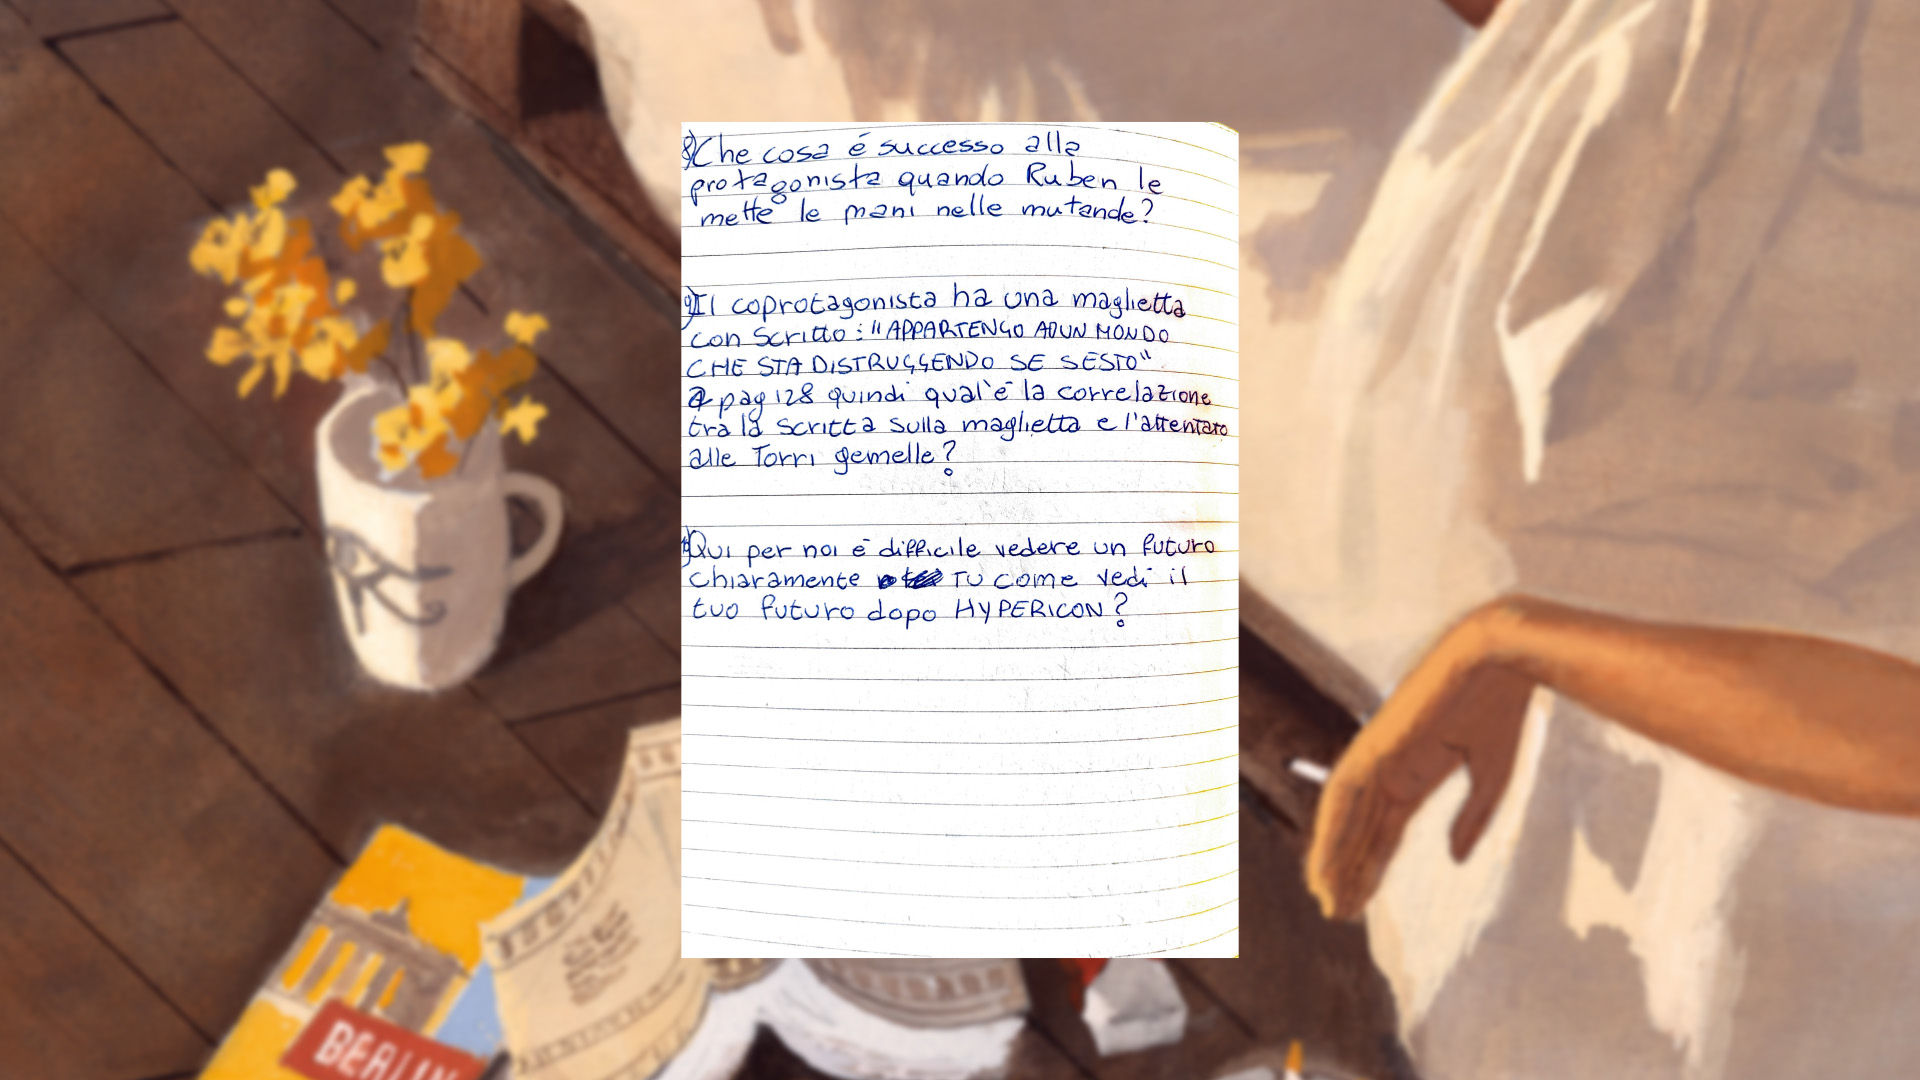 8) Che cosa é successo alla
protagonista quando Ruben le
mette le mani nelle mutande?
9) Il coprotagonista ha una maglietta
con scritto: "APPARTENGO AD UN MONDO
CHE STA DISTRUGGENDO SE SESTO"
a pag 128 quindi qual'è la correlazione
tra la scritta sulla maglietta e l'attentato
alle Torri gemelle?
Qui per noi è difficile vedere un futuro
chiaramente TU come vedi il
tuo futuro dopo HYPERICON?
BERLIN